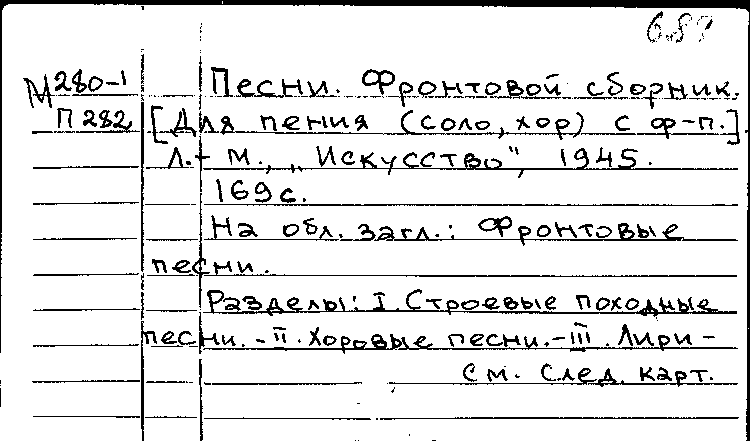 689
М280-1 Песни. Фронтовой сборник.
П282 [Для пения (соло, хор) с ф-п.].
Л.-М., „Искусство", 1945.
169с.
На обл. загл.: Фронтовые
песни.
Разделы: I. Строевые походные
песни. - II. Хоровые песни. - III. Лири-
См. след. карт.